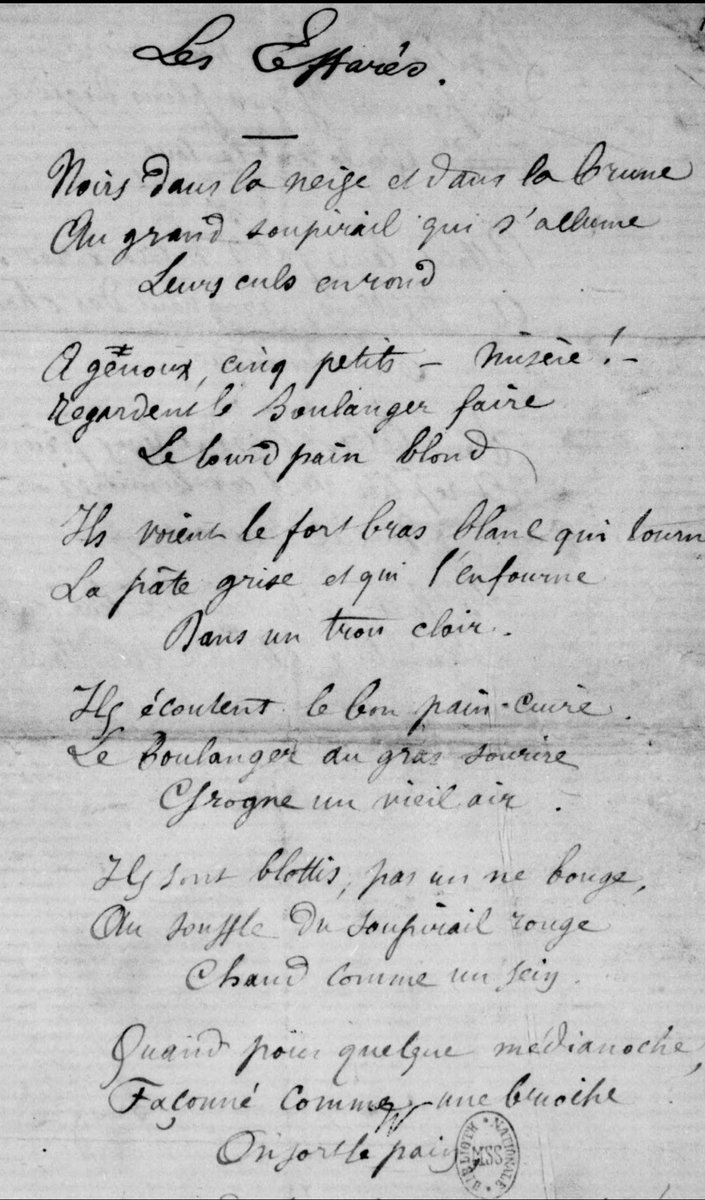 Les Effarés.
Noirs dans la neige et dans la brume
Au grand soupirail qui s'allume
Leurs culs en rond
A genoux, cinq petits – misère! –
Regardent le Boulanger faire
Le lourd pain blond
Ils voient le fort bras blanc qui tourn
La pâte grise et qui l'enfourne
Dans un trou clair.
Ils écoutent le bon pain cuire.
Le Boulanger au gras sourire
Grogne un vieil air.
Ils sont blottis, pas un ne bouge,
Au souffle du soupirail rouge
Chaud comme un sein.
Quand pour quelque médianoche,
Façonné comme une brioche
On sort le pain
BIBLIOTH. NATIONALE MSS